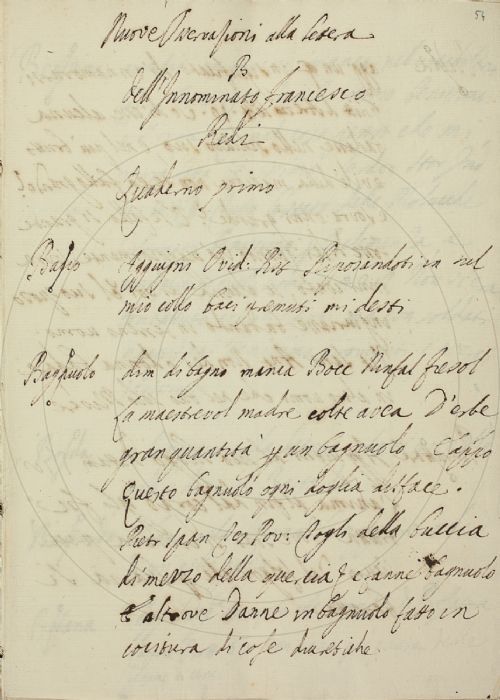 54
Nuove Osservazioni alla Letera
B
dell'Innominato Francesco
Redi
Quaderno primo
Bascio Aggiugni Ovid: Pist Riposandoti in nel
mio collo baci premuti mi desti
Bagnuolo dim di bagno manca Bocc Ninfal Fiesol
La maestrevol madre colte avea D'erbe
gran quantità p un bagnuolo E appo
Questo bagnuolo ogni doglia disface.
Pietr Span Tes Pov: Togli della buccia
di mezzo della quercia e fanne bagnuolo
E altrove Danne in bagnuolo fatto in
cocitura di cose diuretiche